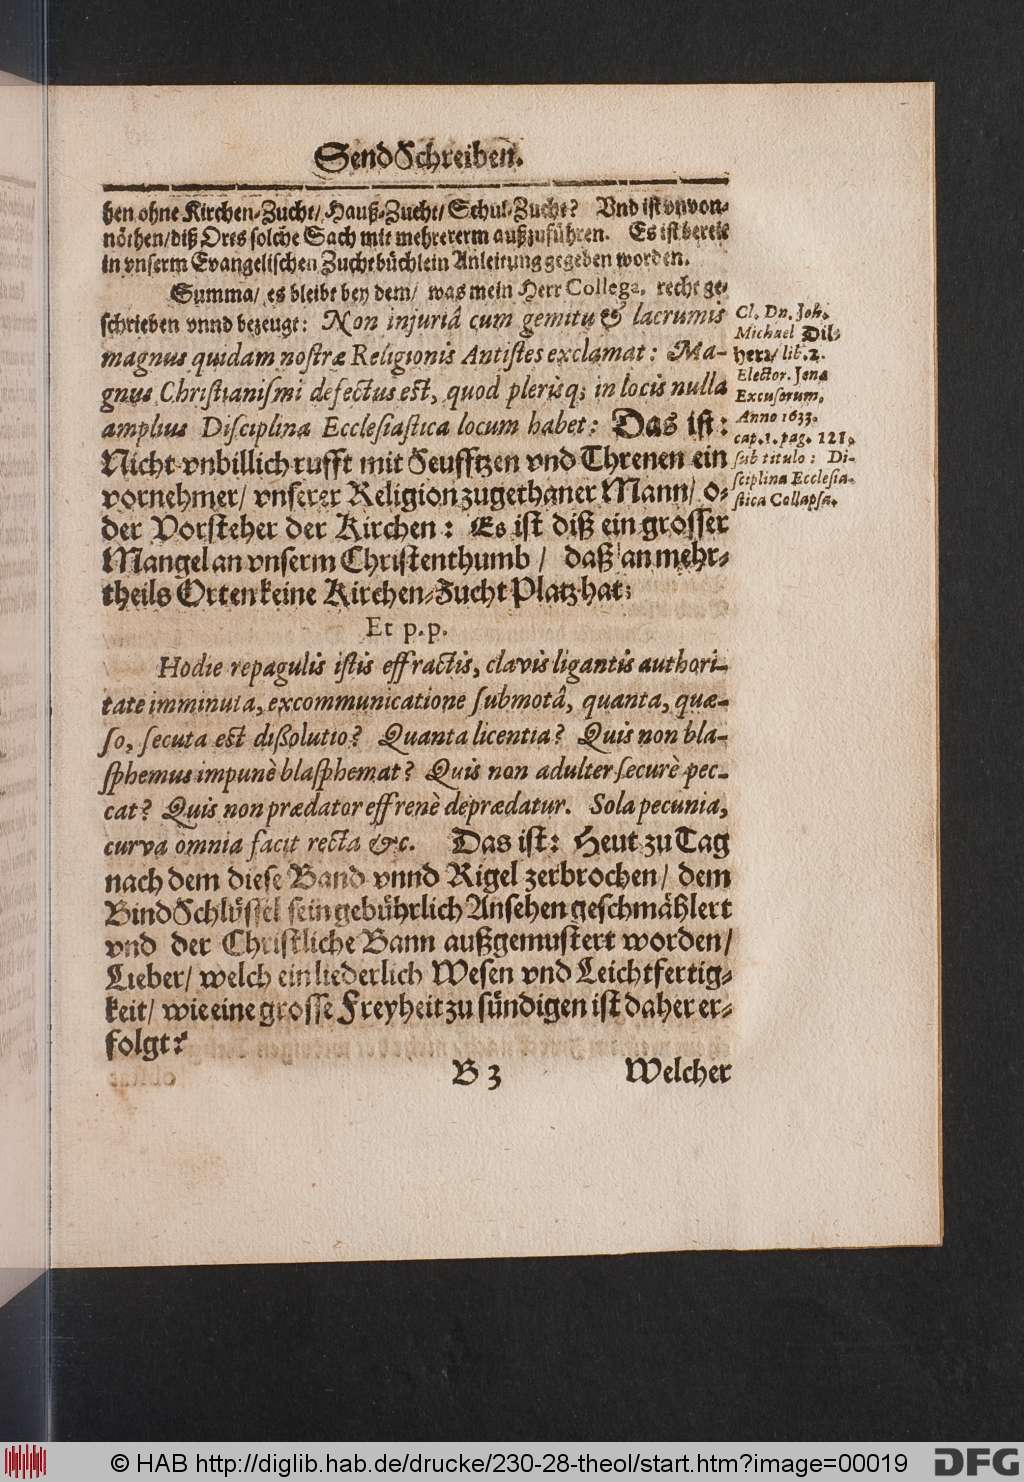 SendSchreiben.
ben ohne Kirchen-Zucht/ Hauß-Zucht/ Schul-Zucht? Vnd ist vnvon-
nöthen/ diß Orts solche Sach mit mehrererm außzuführen. Es ist bereit
in vnserm Evangelischen Zuchtbüchlein Anleitung gegeben worden.
Summa/ es bleibt bey dem/ was mein Herr Collega. recht ge-
schrieben vnnd bezeugt: Non injuriâ cum gemitu & lacrumis
magnus quidam nostræ Religionis Antistes exclamat: Ma-
gnus Christianismi defectus est, quod plerisq; in locis nulla
amplius Disciplina Ecclesiastica locum habet: Das ist:
Nicht vnbillich rufft mit Seufftzen vnd Threnen ein
vornehmer/ vnserer Religion zugethaner Mann/ o-
der Vorsteher der Kirchen: Es ist diß ein grosser
Mangel an vnserm Christenthumb/ daß an mehr-
theils Orten keine Kirchen-Zucht Platz hat;
Et p.p.
Hodie repagulis istis effractis, clavis ligantis authori-
tate imminuta, excommunicatione submotâ, quanta, quæ-
so, secuta est dißolutio? Quanta licentia? Quis non bla-
sphemus impunè blasphemat? Quis non adulter securè pec-
cat? Quis non prædator effrenè deprædatur. Sola pecunia,
curva omnia facit recta &c. Das ist: Heut zu Tag
nach dem diese Band vnnd Rigel zerbrochen/ dem
BindSchlüssel sein gebührlich Ansehen geschmählert
vnd der Christliche Bann außgemustert worden/
Lieber/ welch ein liederlich Wesen vnd Leichtfertig-
keit/ wie eine grosse Freyheit zu sündigen ist daher er-
folgt?
B 3 Welcher
Cl. Dn. Joh.
Michael Dil-
herz/ lib. 2.
Elector. Jena
Excusorum,
Anno 1633.
cap. 1. pag. 121.
sub titulo: Di-
sciplina Ecclesia-
stica Collapsa.
© HAB http://diglib.hab.de/drucke/230-28-theol/start.htm?image=00019
DFG